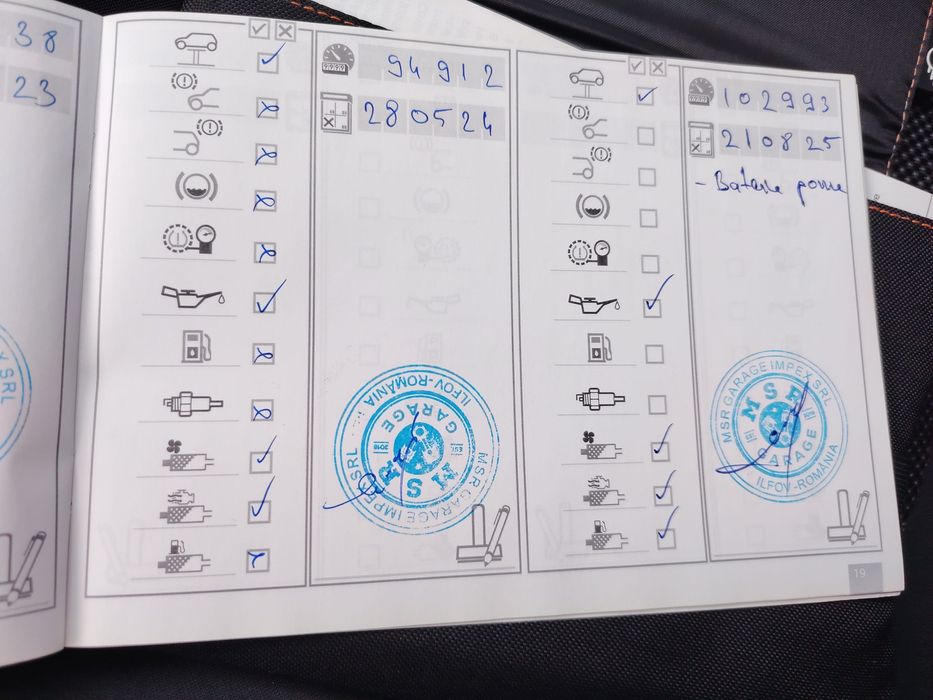 38
23
SRL
94912
280524
MSR GARAGE IMPEX SRL
ILFOV-ROMÂNIA
MSR
GARAGE
EST.
2018
102993
210825
- Baterie
MSR GARAGE IMPEX SRL
ILFOV-ROMÂNIA
MSR
GARAGE
19